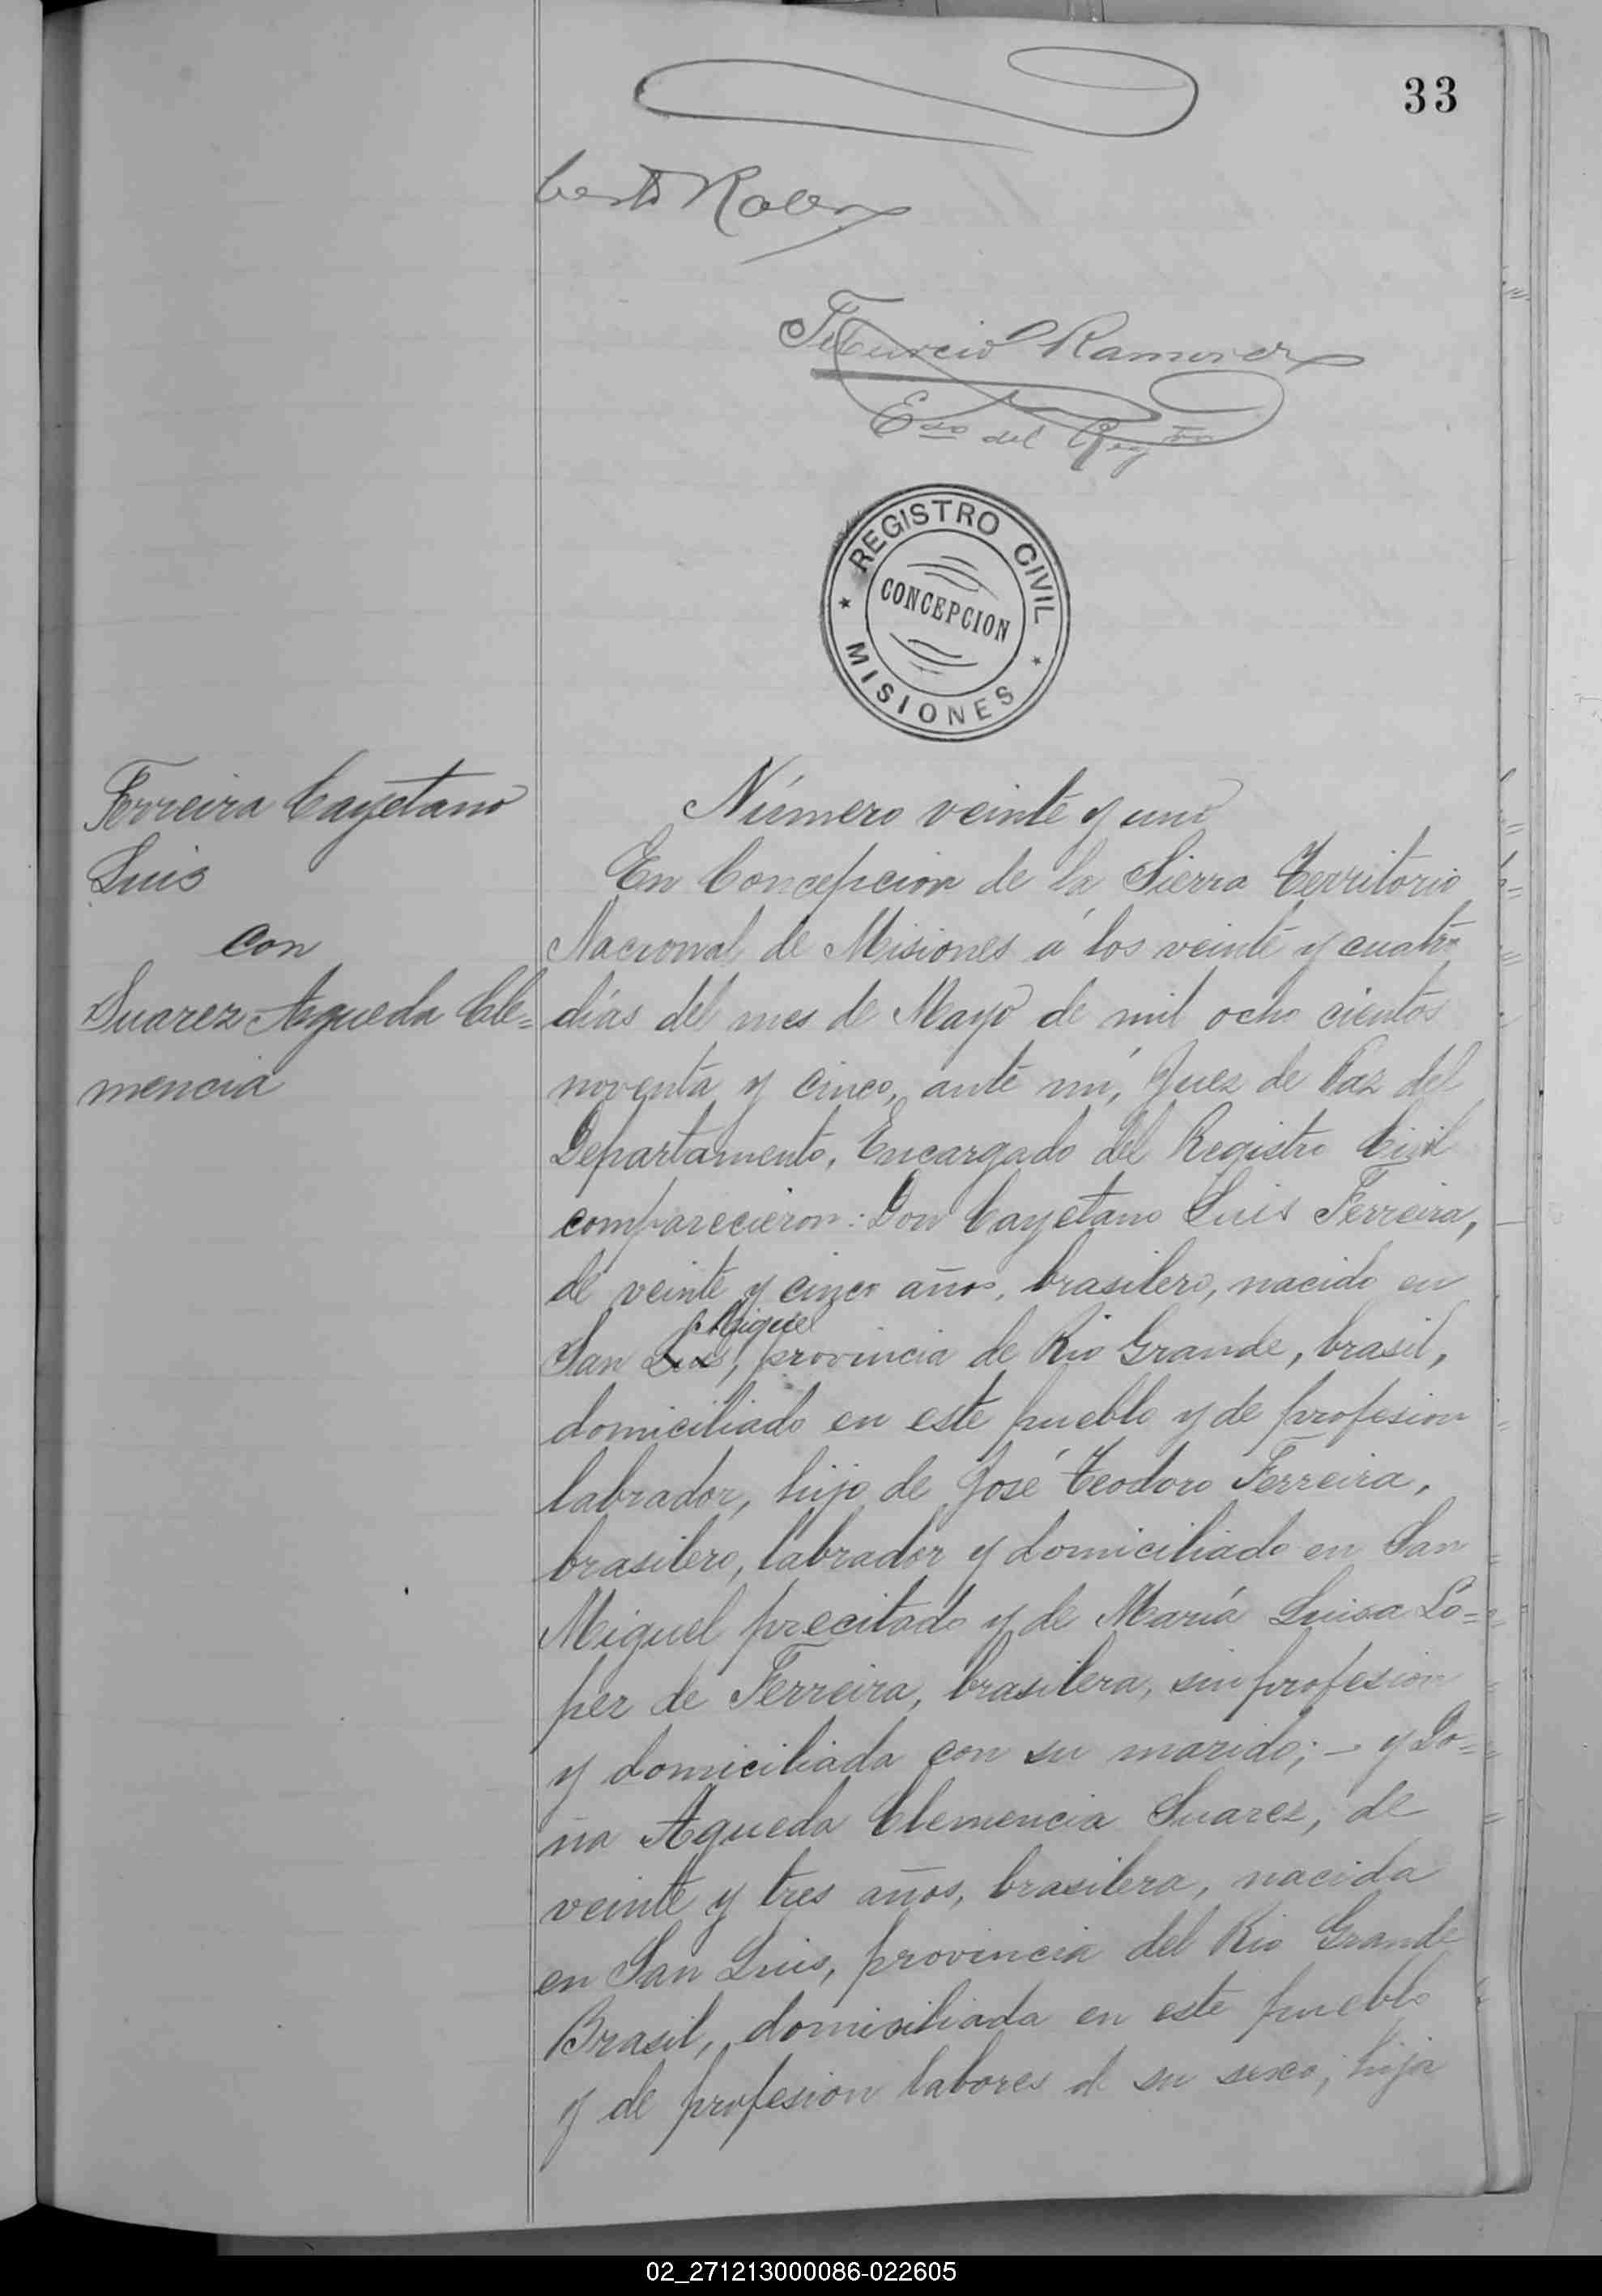 33
Tiburcio Ramirez
del
REGISTRO CIVIL
CONCEPCION
MISIONES
Ferreira Cayetano
Luis
con
Suarez Agueda Cle=
mencia
Número veinte y uno
En Concepcion de la Sierra Territorio
Nacional de Misiones á los veinte y cuatro
días del mes de Mayo de mil ocho cientos
noventa y cinco, ante mí, Juez de Paz del
Departamento, Encargado del Registro Civil
comparecieron: Don Cayetano Luis Ferreira,
de veinte y cinco años, brasilero, nacido en
Miguel
San Luis, provincia de Rio Grande, brasil,
domiciliado en este pueblo y de profesion
labrador, hijo de José Teodoro Ferreira,
brasilero, labrador y domiciliado en San
Miguel precitado y de María Luisa Lo=
pez de Ferreira, brasilera, sin profesion
y domiciliada con su marido; - y Do=
ña Agueda Clemencia Suarez, de
veinte y tres años, brasilera, nacida
en San Luis, provincia del Rio Grande
Brasil, domiciliada en este pueblo
y de profesion labores de su sexo, hija
02_271213000086-022605